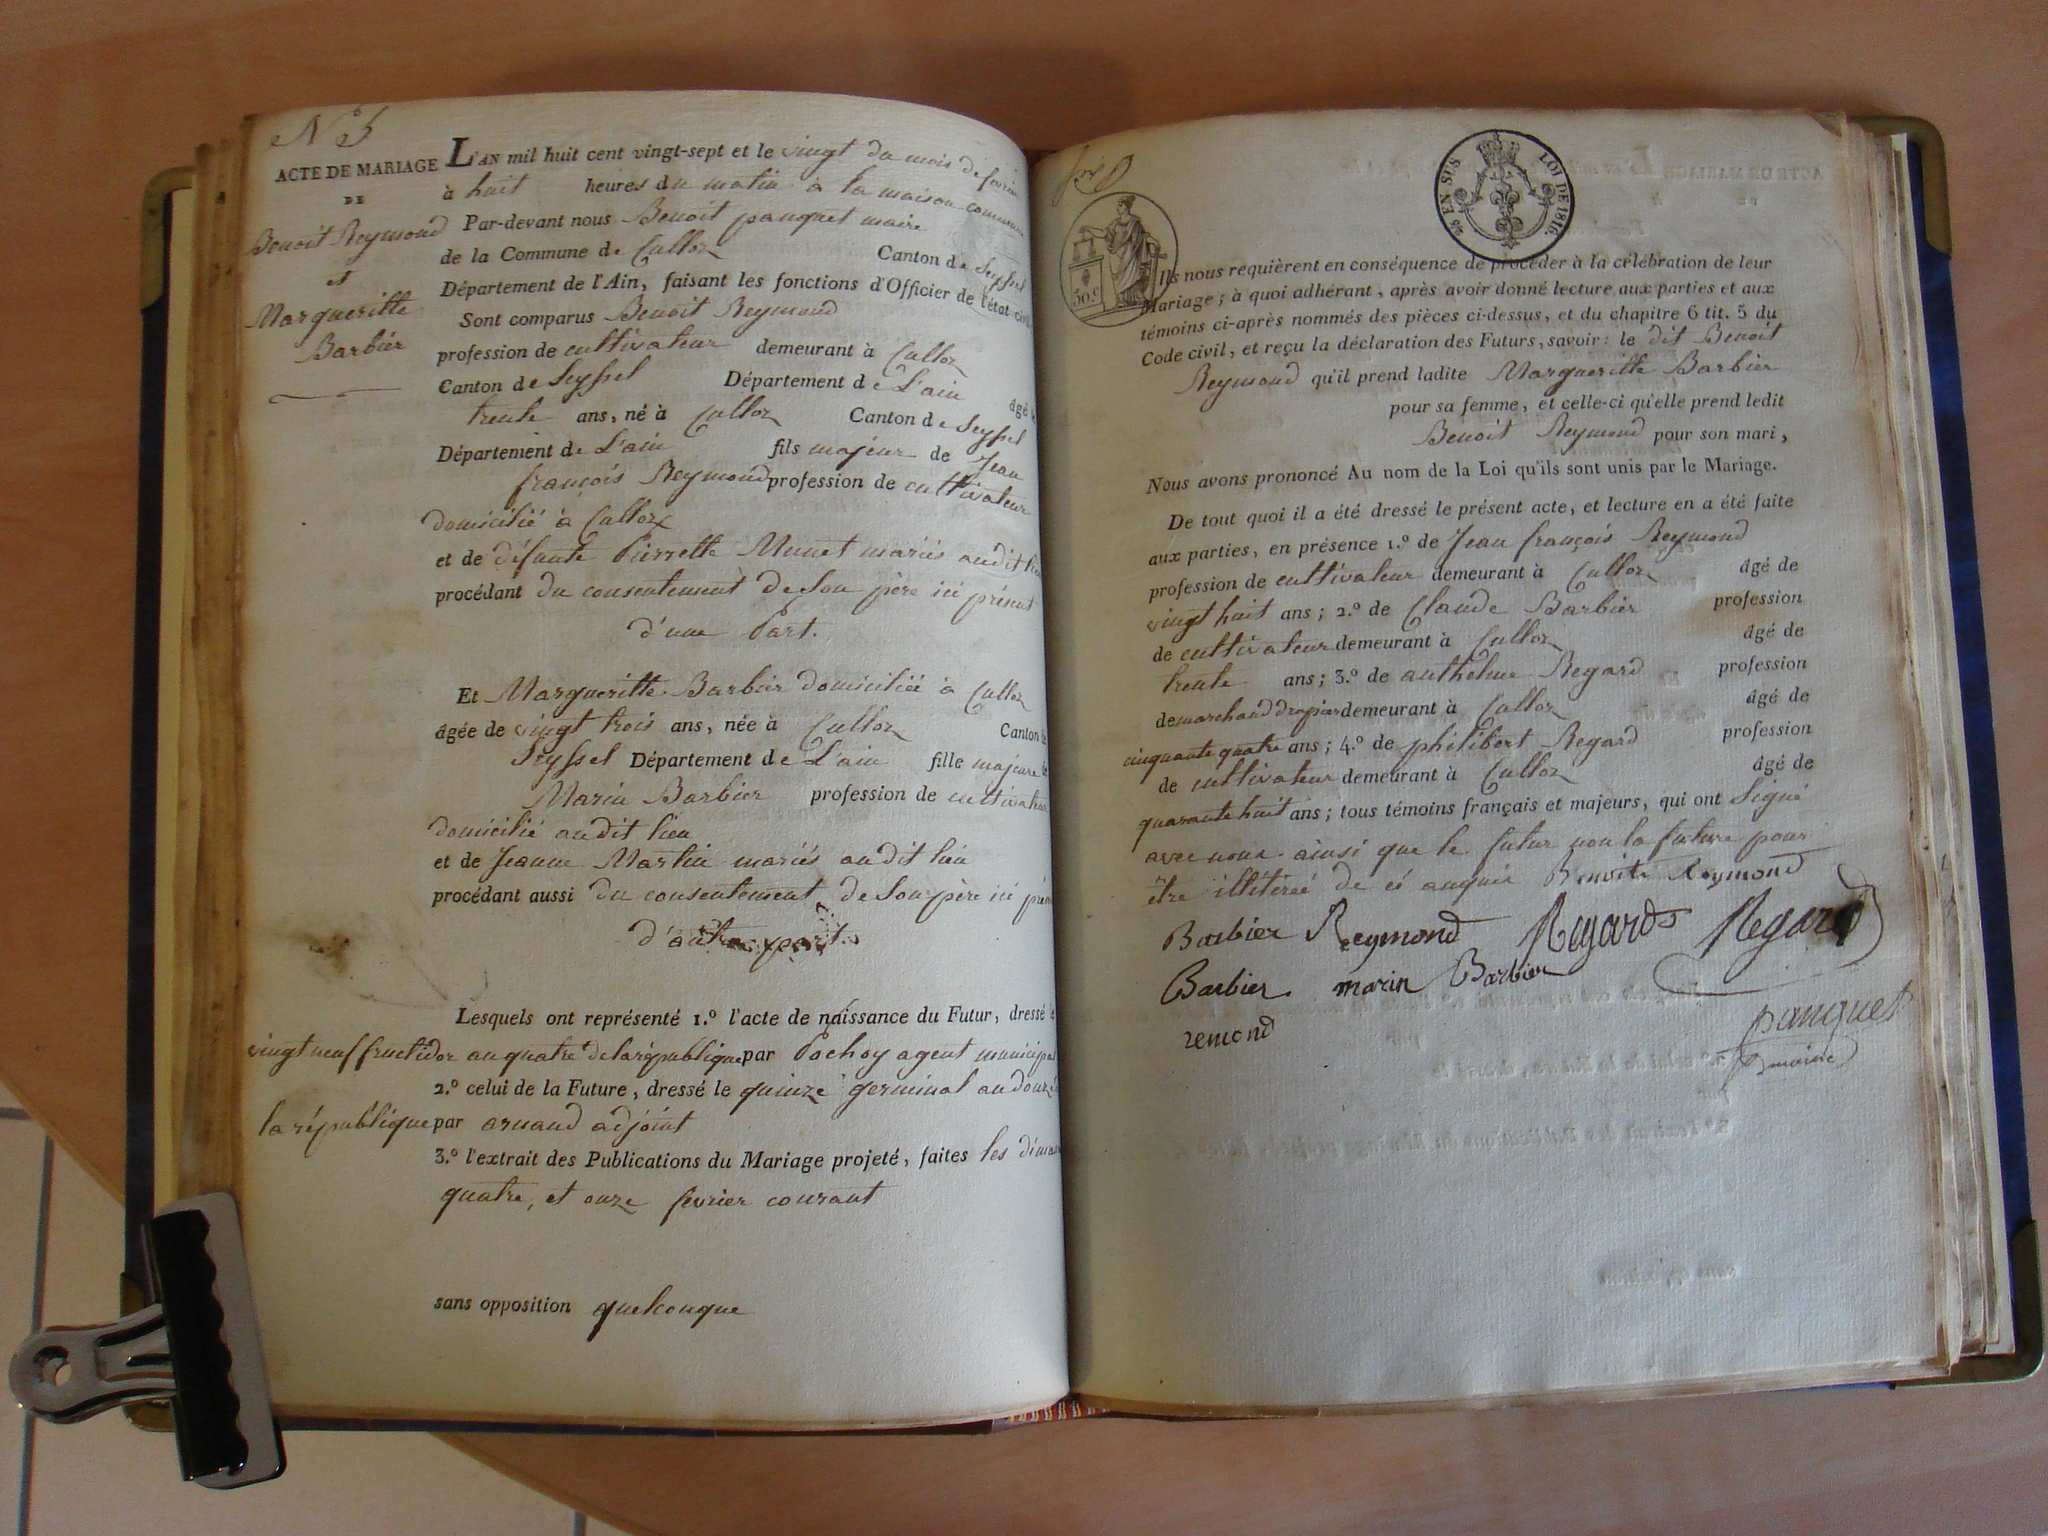 N° 5
ACTE DE MARIAGE
DE
Benoit Reymond
et
Margueritte
Barbier
L'AN mil huit cent vingt-sept et le vingt du mois de fevrier
à huit heures du matin à la maison commune
Par-devant nous Benoit panquet maire
de la Commune de Culloz Canton de Seyssel
Département de l'Ain, faisant les fonctions d'Officier de l'état civil
Sont comparus Benoit Reymond
profession de cultivateur demeurant à Culloz
Canton de Seyssel Département de L'ain âgé
trente ans, né à Culloz Canton de Seyssel
Département de L'ain fils majeur de Jean
françois Reymond profession de cultivateur
domicilié à Culloz
et de défunte Pierrette Munet mariés audit lieu
procédant du consentement de son père ici présent
d'une Part.
Et Margueritte Barbier domiciliée à Culloz
âgée de vingt trois ans, née à Culloz Canton de
Seyssel Département de L'ain fille majeure de
Marin Barbier profession de cultivateur
domicilié audit lieu
et de Jeanne Martin mariés audit lieu
procédant aussi du consentement de son père ici
d'autre part.
Lesquels ont représenté 1.º l'acte de naissance du Futur, dressé
vingt neuf fructidor an quatre de la république par Pochoy agent municipal
2.º celui de la Future, dressé le quinze germinal an douze
la république par arnaud adjoint
3.º l'extrait des Publications du Mariage projeté, faites les
quatre, et onze fevrier courant
sans opposition quelconque
25 EN SUS
LOI DE 1816.
50.c
Ils nous requièrent en conséquence de procéder à la célébration de leur
Mariage; à quoi adhérant, après avoir donné lecture aux parties et aux
témoins ci-après nommés des pièces ci-dessus, et du chapitre 6 tit. 5 du
Code civil, et reçu la déclaration des Futurs, savoir: le dit Benoit
Reymond qu'il prend ladite Margueritte Barbier
pour sa femme, et celle-ci qu'elle prend ledit
Benoit Reymond pour son mari,
Nous avons prononcé Au nom de la Loi qu'ils sont unis par le Mariage.
De tout quoi il a été dressé le présent acte, et lecture en a été faite
aux parties, en présence 1.º de Jean françois Reymond
profession de cultivateur demeurant à Culloz âgé de
vingt huit ans; 2.º de Claude Barbier profession
de cultivateur demeurant à Culloz âgé de
trente ans; 3.º de anthelme Regard profession
de marchand drapier demeurant à Culloz âgé de
cinquante quatre ans; 4.º de philibert Regard profession
de cultivateur demeurant à Culloz âgé de
quarante huit ans; tous témoins français et majeurs, qui ont Signé
avec nous ainsi que le futur non la future pour
être illitéreé de ce anquis Benoit Reymond
Barbier Reymond Regard Regard
Barbier marin Barbier
remond panquet
maire